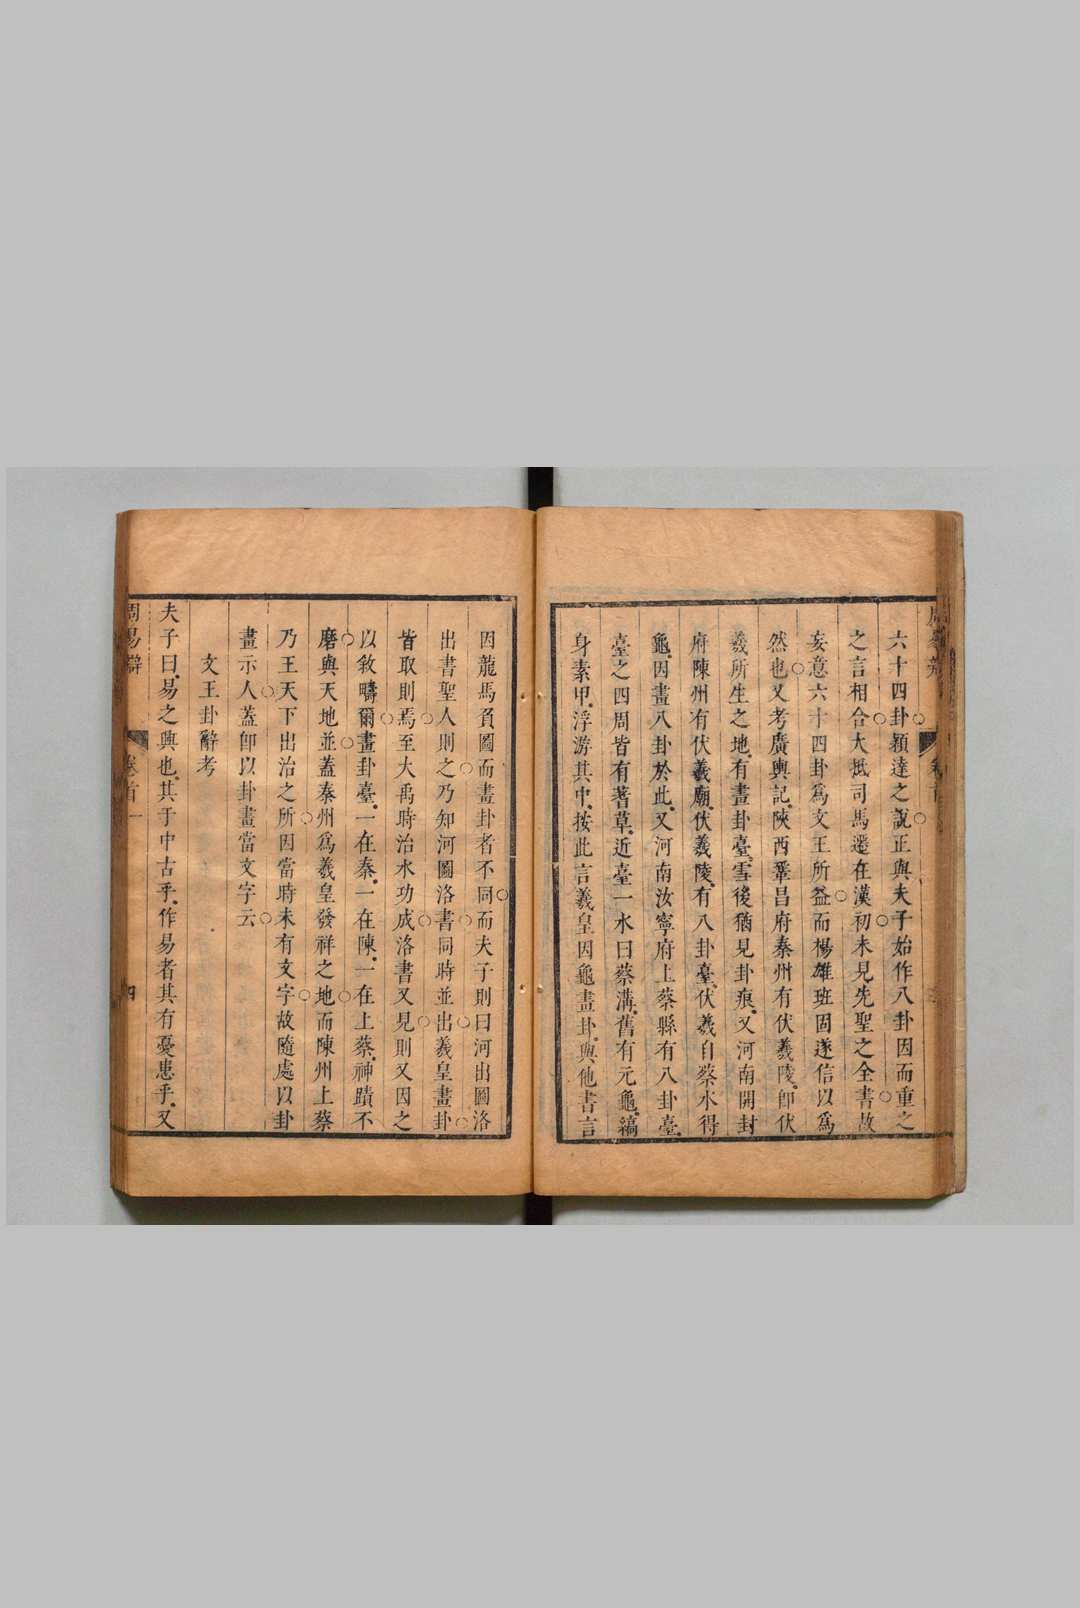 六十四卦穎達之說正與夫子始作八卦因而重之
之言相合大抵司馬遷在漢初未見先聖之全書故
妄意六十四卦爲文王所益而楊雄班固遂信以爲
然也又考廣輿記陝西鞏昌府秦州有伏羲陵卽伏
羲所生之地有畫卦臺雪後猶見卦痕又河南開封
府陳州有伏羲廟伏羲陵有八卦臺伏羲自蔡水得
龜因畫八卦於此又河南汝寧府上蔡縣有八卦臺
臺之四周皆有蓍草近臺一水曰蔡溝舊有元龜縞
身素甲浮游其中按此言羲皇因龜畫卦與他書言
因龍馬負圖而畫卦者不同而夫子則曰河出圖洛
出書聖人則之乃知河圖洛書同時並出羲皇畫卦
皆取則焉至大禹時治水功成洛書又見則又因之
以敘疇爾畫卦臺一在秦一在陳一在上蔡神蹟不
磨與天地並蓋秦州爲羲皇發祥之地而陳州上蔡
乃王天下出治之所因當時未有文字故隨處以卦
畫示人蓋卽以卦畫當文字云
文王卦辭考
夫子曰易之興也其于中古乎作易者其有憂患乎又
周易辯
卷首一
四